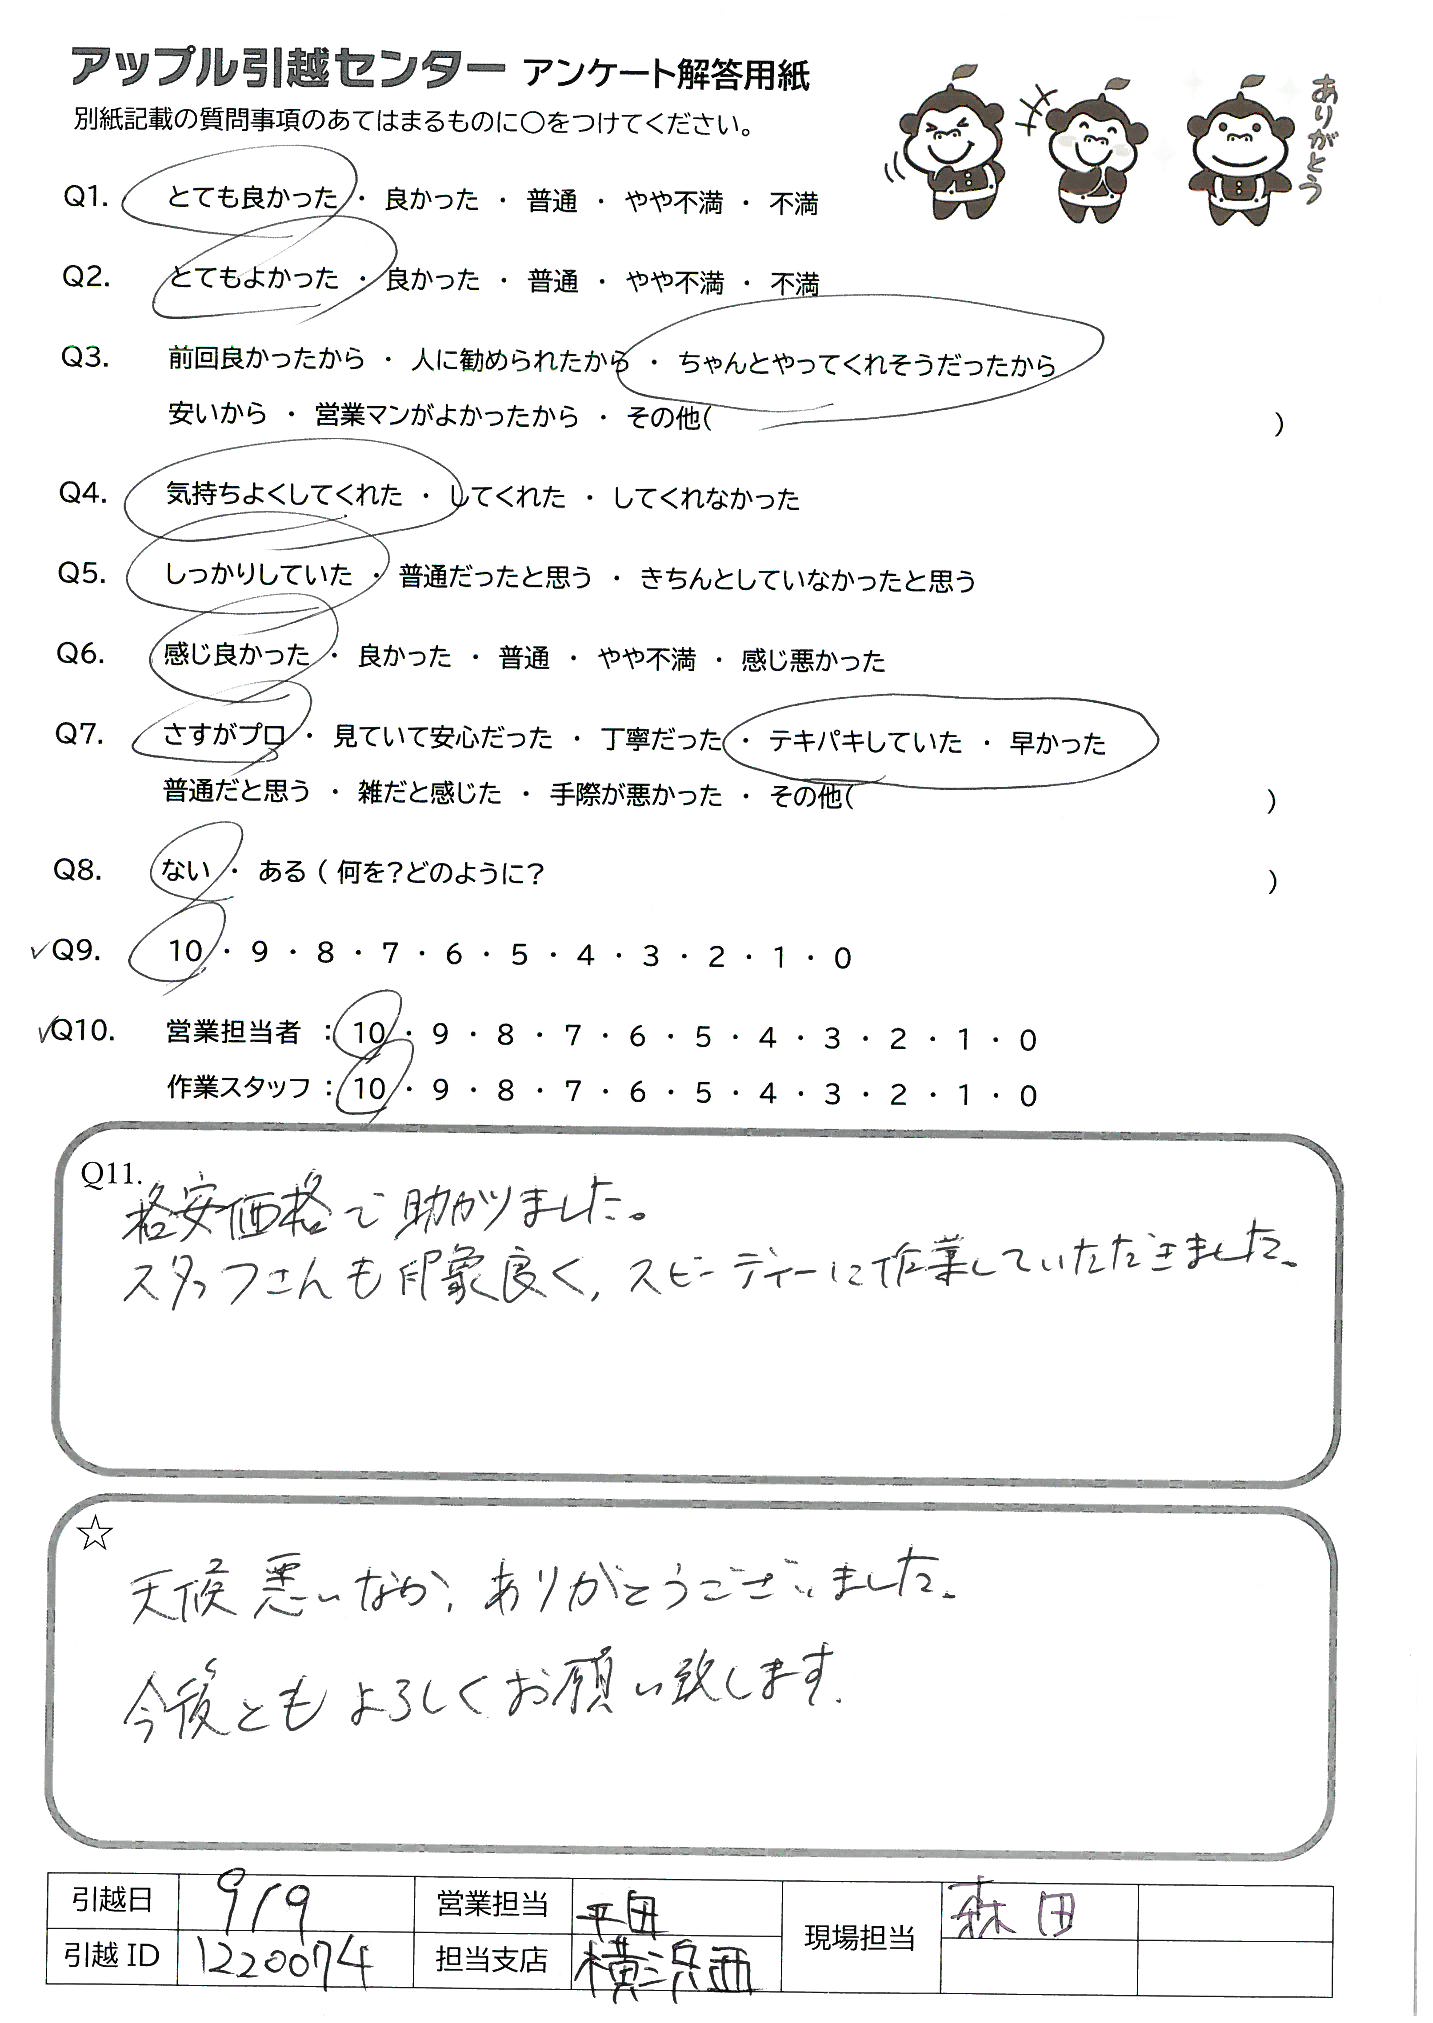 アップル引越センター アンケート解答用紙
別紙記載の質問事項のあてはまるものに○をつけてください。
ありがとう
Q1. とても良かった ・ 良かった ・ 普通 ・ やや不満 ・ 不満
Q2. とてもよかった ・ 良かった ・ 普通 ・ やや不満 ・ 不満
Q3. 前回良かったから ・ 人に勧められたから ・ ちゃんとやってくれそうだったから
安いから ・ 営業マンがよかったから ・ その他( )
Q4. 気持ちよくしてくれた ・ してくれた ・ してくれなかった
Q5. しっかりしていた ・ 普通だったと思う ・ きちんとしていなかったと思う
Q6. 感じ良かった ・ 良かった ・ 普通 ・ やや不満 ・ 感じ悪かった
Q7. さすがプロ ・ 見ていて安心だった ・ 丁寧だった ・ テキパキしていた ・ 早かった
普通だと思う ・ 雑だと感じた ・ 手際が悪かった ・ その他( )
Q8. ない ・ ある ( 何を?どのように? )
✓Q9. 10 ・ 9 ・ 8 ・ 7 ・ 6 ・ 5 ・ 4 ・ 3 ・ 2 ・ 1 ・ 0
✓Q10. 営業担当者 : 10 ・ 9 ・ 8 ・ 7 ・ 6 ・ 5 ・ 4 ・ 3 ・ 2 ・ 1 ・ 0
作業スタッフ : 10 ・ 9 ・ 8 ・ 7 ・ 6 ・ 5 ・ 4 ・ 3 ・ 2 ・ 1 ・ 0
Q11.
格安価格で助かりました。
スタッフさんも印象良く、スピーディーに作業していただきました。
☆
天候悪いなか、ありがとうございました。
今後ともよろしくお願い致します.
引越日 9/9 営業担当 平田 現場担当 森田
引越ID 1220074 担当支店 横浜西